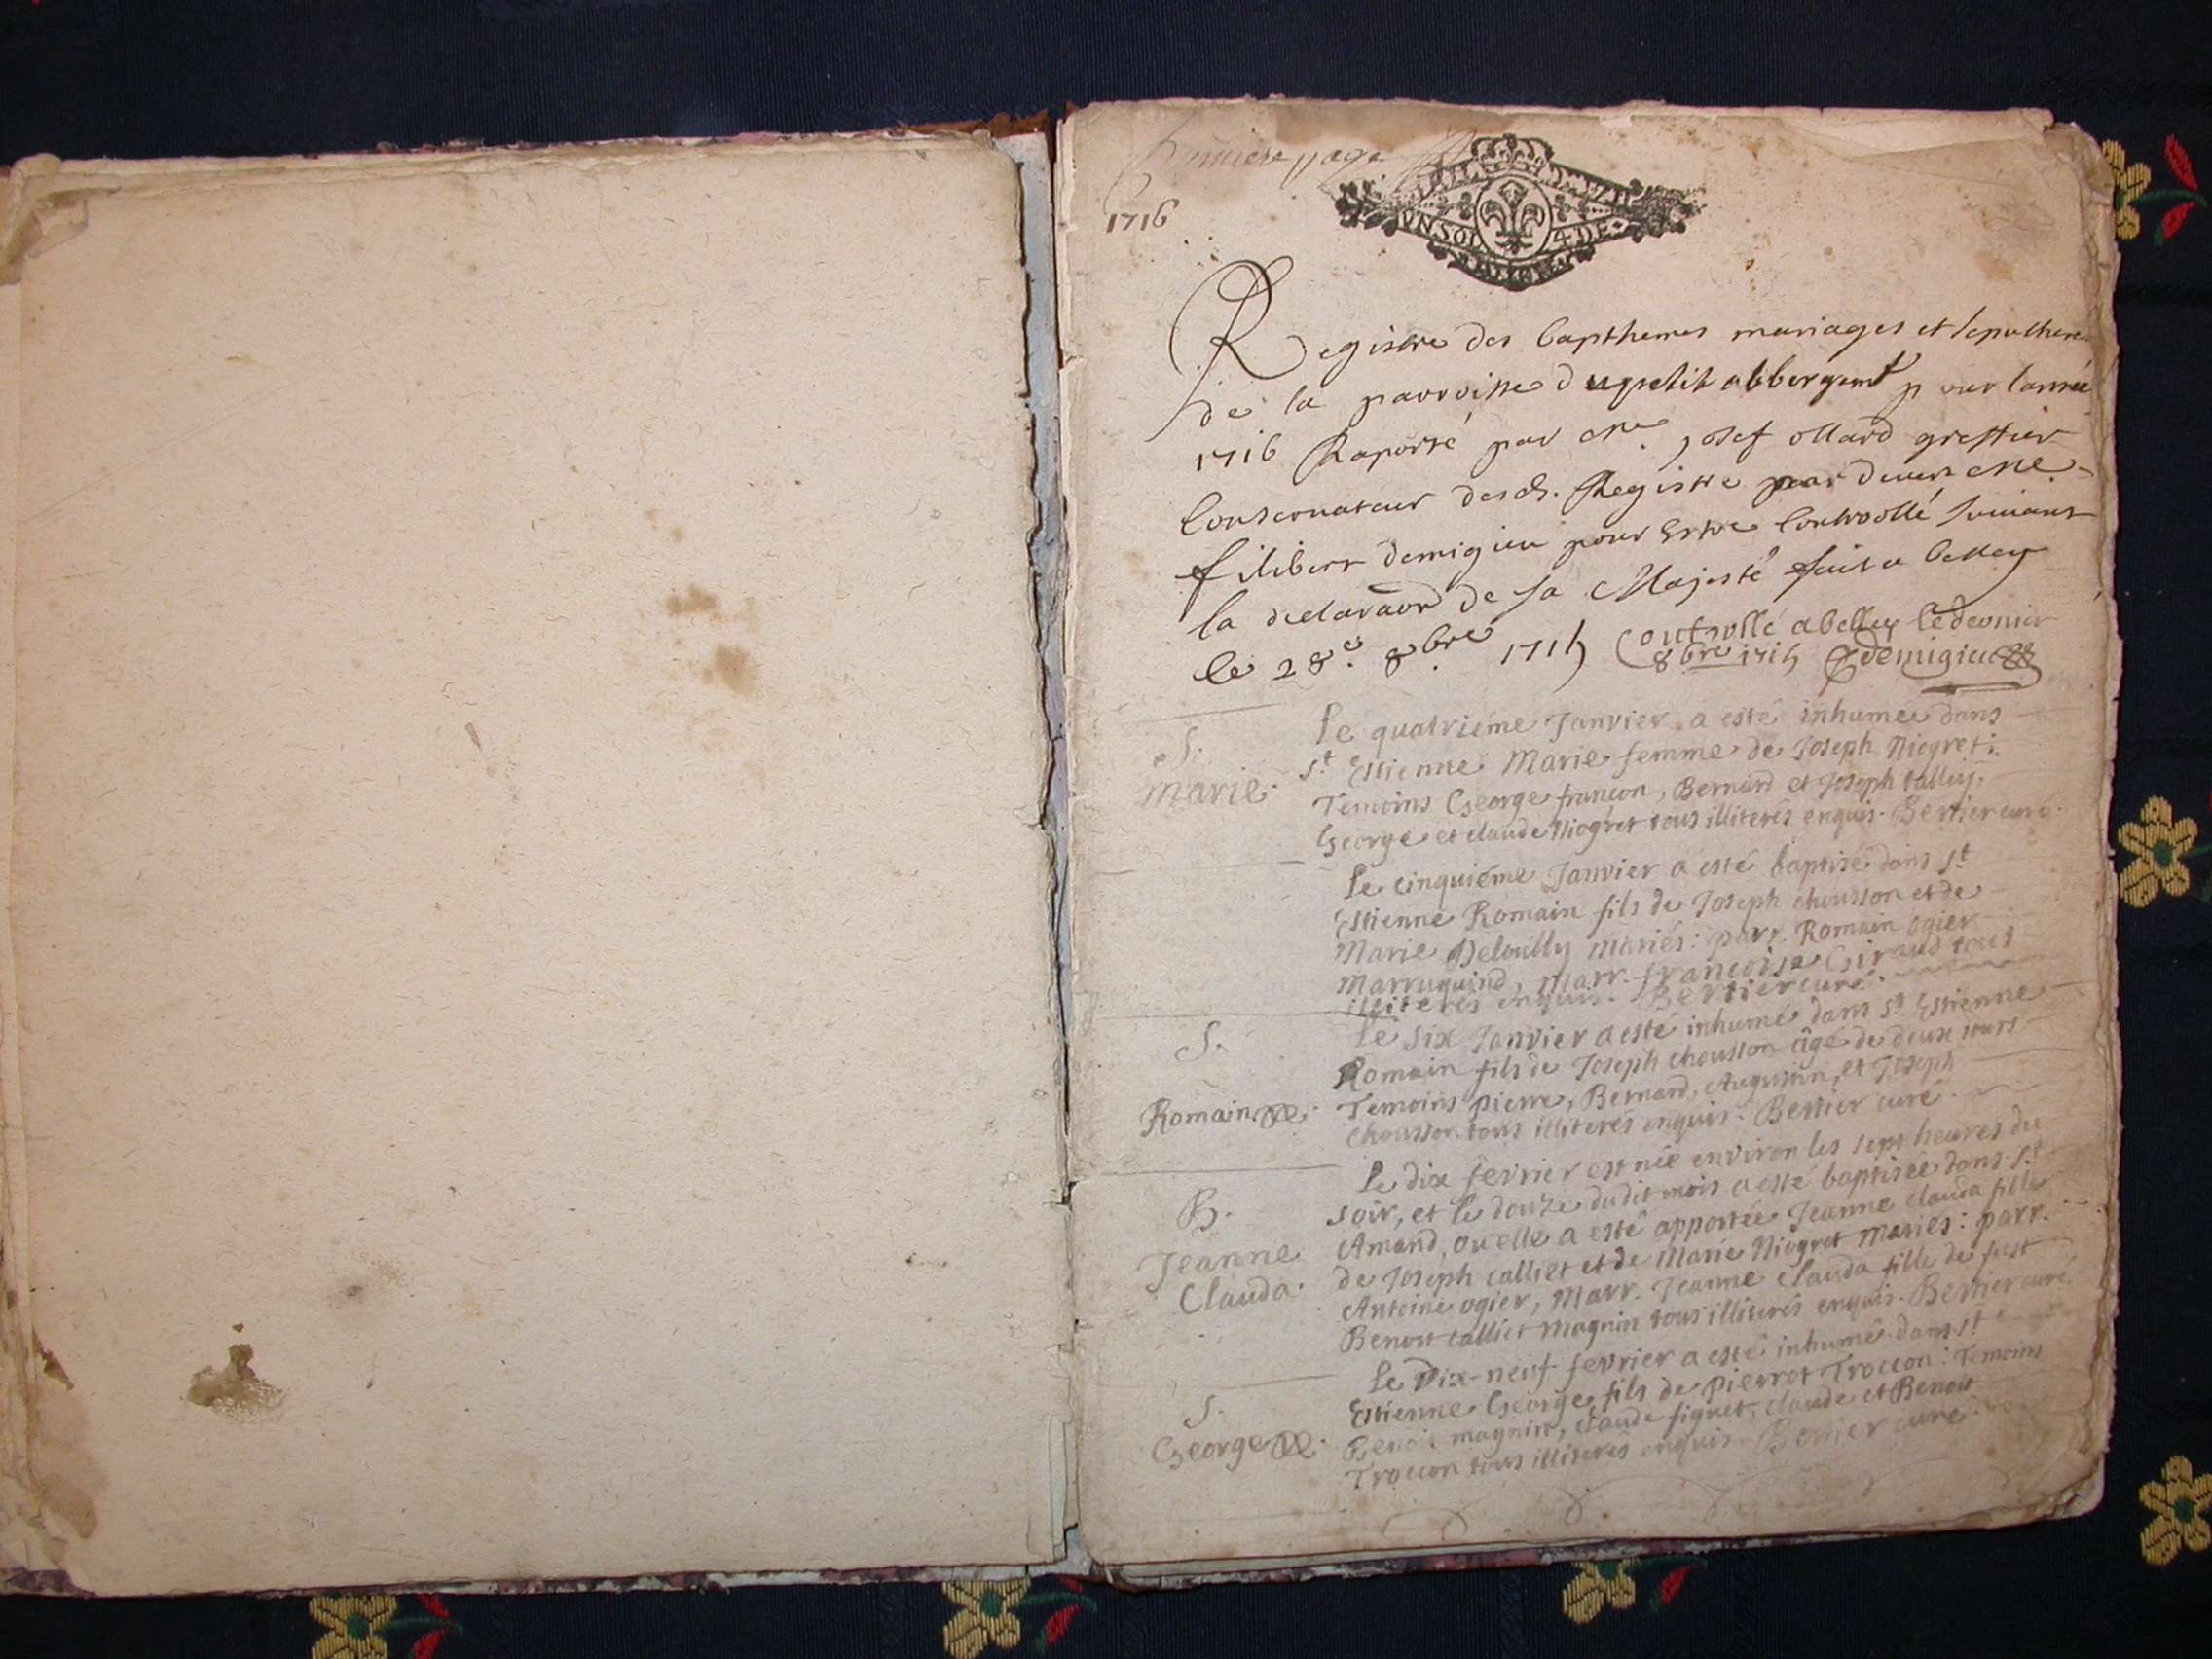 premiere page
1716
UN SOL 4 DE
Registre des bapthemes mariages et sepulthures
de la parroisse du petit abbergemt pour lannée
1716 Raporté par Me. josef ollard greffier
Conservateur desd. Registre par devers Me.
filibert demigieu pour Estre Controollé suivant
la declaraõn de sa Majesté fait a belley
le 28e. 8bre. 1715 Controllé a belley le dernier
8bre 1715 demigieu
S.
Marie.
Le quatriéme Janvier a esté inhumée dans
St. Estienne Marie femme de Joseph Niogret:
Temoins George françon, Bernard et Joseph
George et claude Niogret tous illiterés enquis. Bertier curé.
Le cinquiéme Janvier a esté baptisé dans St
Estienne Romain fils de Joseph chousson et de
Marie Deloully Mariés: parr. Romain ogier
Marruquind, Marr. françoise Giraud tous
illiterés enquis. Bertier curé.
S.
Romain.
Le six Janvier a esté inhumé dans St Estienne
Romain fils de Joseph chousson âgé de deux jours
Temoins pierre, Bernard, Augustin, et Joseph
Chousson tous illiterés enquis. Bertier curé.
B.
Jeanne
Clauda.
Le dix fevrier est née environ les sept heures du
soir, et le douze dudit mois a esté baptisée dans St
Amand, ou elle a esté apportée Jeanne clauda fille
de Joseph calliet et de Marie Niogret Mariés: parr.
Antoine ogier, Marr. Jeanne clauda fille de fust
Benoit calliet Magnin tous illiterés enquis. Bertier curé
S.
George
Le Dix-neuf fevrier a esté inhumé dans St
Estienne George fils de pierrot Troccon: Temoins
Benoit magnin, claude figuet, claude et Benoit
Troccon tous illiterés enquis. Bertier curé